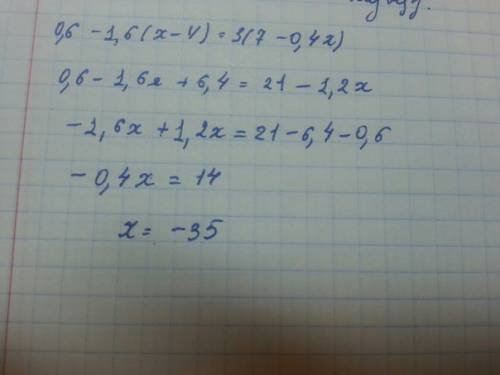 0,6 - 1,6(x-4) = 3(7 - 0,4x)
0,6 - 1,6x + 6,4 = 21 - 1,2x
-1,6x + 1,2x = 21 - 6,4 - 0,6
-0,4x = 14
x = -35